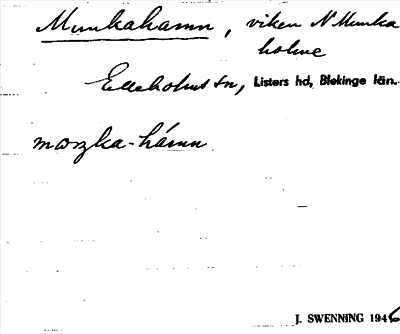 Munkahamn, viken N Munka
holme
Elleholms sn, Listers hd, Blekinge län.
moŋka-hámn
J. SWENNING 1946